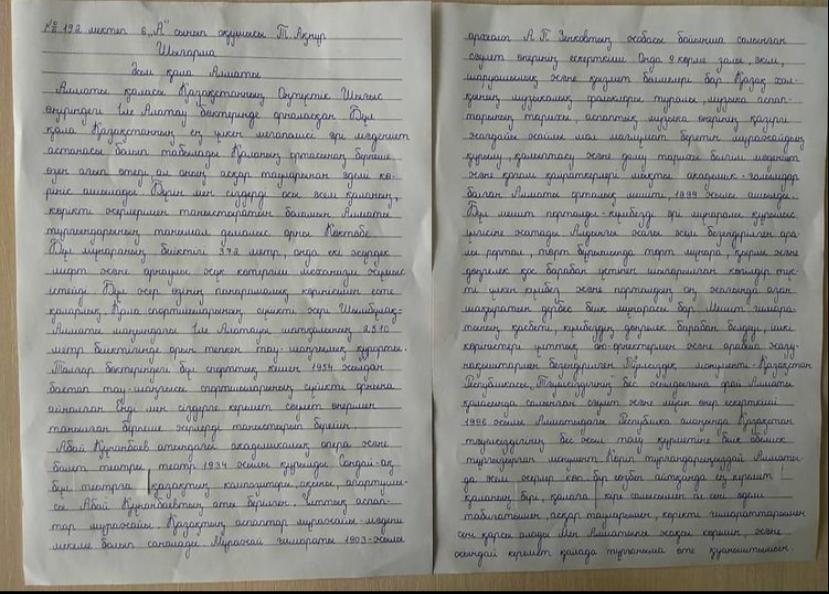 № 192 мектеп 6 „А" сынып оқушысы Т. Ақнұр
Шығарма
Әсем қала Алматы
Алматы қаласы Қазақстанның Оңтүстік Шығыс
өңіріндегі Іле Алатау бөктерінде орналасқан Бұл
қала Қазақстанның ең үлкен мегаполисі әрі мәдениет
астанасы болып табылады Қаланың ортасынан бірнеше
өзен ағып өтеді, ал оның асқар тауларынан әдемі кө-
рініс ашылады Бүгін мен сіздерді осы әсем қаланың,
көрікті жерлерімен таныстыратын боламын Алматы
тұрғындарының танымал демалыс орны Көктөбе
Бұл мұнараның биіктігі 372 метр, онда екі жүрдек
лифт және арнаулы жүк көтергіш механизм жұмыс
істейді. Бұл жер өзінің панорамалық көрінісімен есте
қаларлық. Қала спортшыларының сүйікті жері Шымбұлақ-
Алматы маңындағы Іле Алатауы шатқалының 2510
метр биіктігінде орын тепкен тау-шаңғылық курорты.
Талғар бөктеріндегі бұл спорттық кешен 1954 жылдан
бастап тау-шаңғысы спортшыларының сүйікті орнына
айналған Енді мен сіздерге керемет сәулет өнерімен
танылған бірнеше жерлерді таныстырып берейін.
Абай Құнанбаев атындағы академиялық опера және
балет театры, театр 1934 жылы құрылды Сондай-ақ
бұл театрға қазақтың композиторы, ақыны, ағартушы-
сы Абай Құнанбаевтың аты берілген. Ұлттық аспап-
тар мұражайы. Қазақтың аспаптар мұражайы-мәдени
мекеме болып саналады. Мұражай ғимараты 1903-жылы
архитект А. П. Зенковтың жобасы бойынша салынған
сәулет өнерінің ескерткіші Онда 9 көрме залы, әкім,
шаруашылық және қызмет бөлмелері бар Қазақ хал-
қының музыкалық фольклоры туралы, музыка аспап-
тарының тарихы, аспаптық музыка өнерінің қазіргі
жағдайы жайлы мол мағлұмат беретін мұражайдың
құрылу, қалыптасу және даму тарихы белгілі мәдениет
және қоғам қайраткерлері мықты академик-ғалымдар
болған Алматы орталық мешіті, 1999 жылы ашылды.
Бұл мешіт порталды-күмбезді әрі мұнаралы құрылыс
үлгісіне жатады Алдыңғы жағы әсем безендірілген ара-
лы портал, төрт бұрышында төрт мұнара, қырлы және
дөңгелек қос барабан үстінен шығарылған көгілдір түс-
ті үлкен күмбез және порталдың оң жағында азан
шақыратын дербес биік мұнарасы бар Мешіт ғимара-
тының қасбеті, күмбездің дөңгелек барабан белдеуі, ішкі
көріністері ұлттық ою-өрнектермен және арабша жазу-
нақыштармен безендірілген Тәуелсіздік монументі-Қазақстан
Республикасы, Тәуелсіздігінің бес жылдығына орай Алматы
қаласында салынған сәулет және мүсін өнер ескерткіші
1996 жылы Алматыдағы Республика алаңында Қазақстан
тәуелсіздігінің бес жыл толу құрметіне биік обелиск
тұрғызылған монумент Көріп тұрғандарыңыздай Алматы-
да әсем жерлер көп бір сөзбен айтқанда ең керемет
қаланың бірі, қалаға кіре салысымен ол сені әдемі
табиғатымен, асқар тауларымен, көрікті ғимараттарымен
сені қарсы алады Мен Алматыны жақсы көремін, және
осындай керемет қалада тұрғаныма өте қуаныштымын.